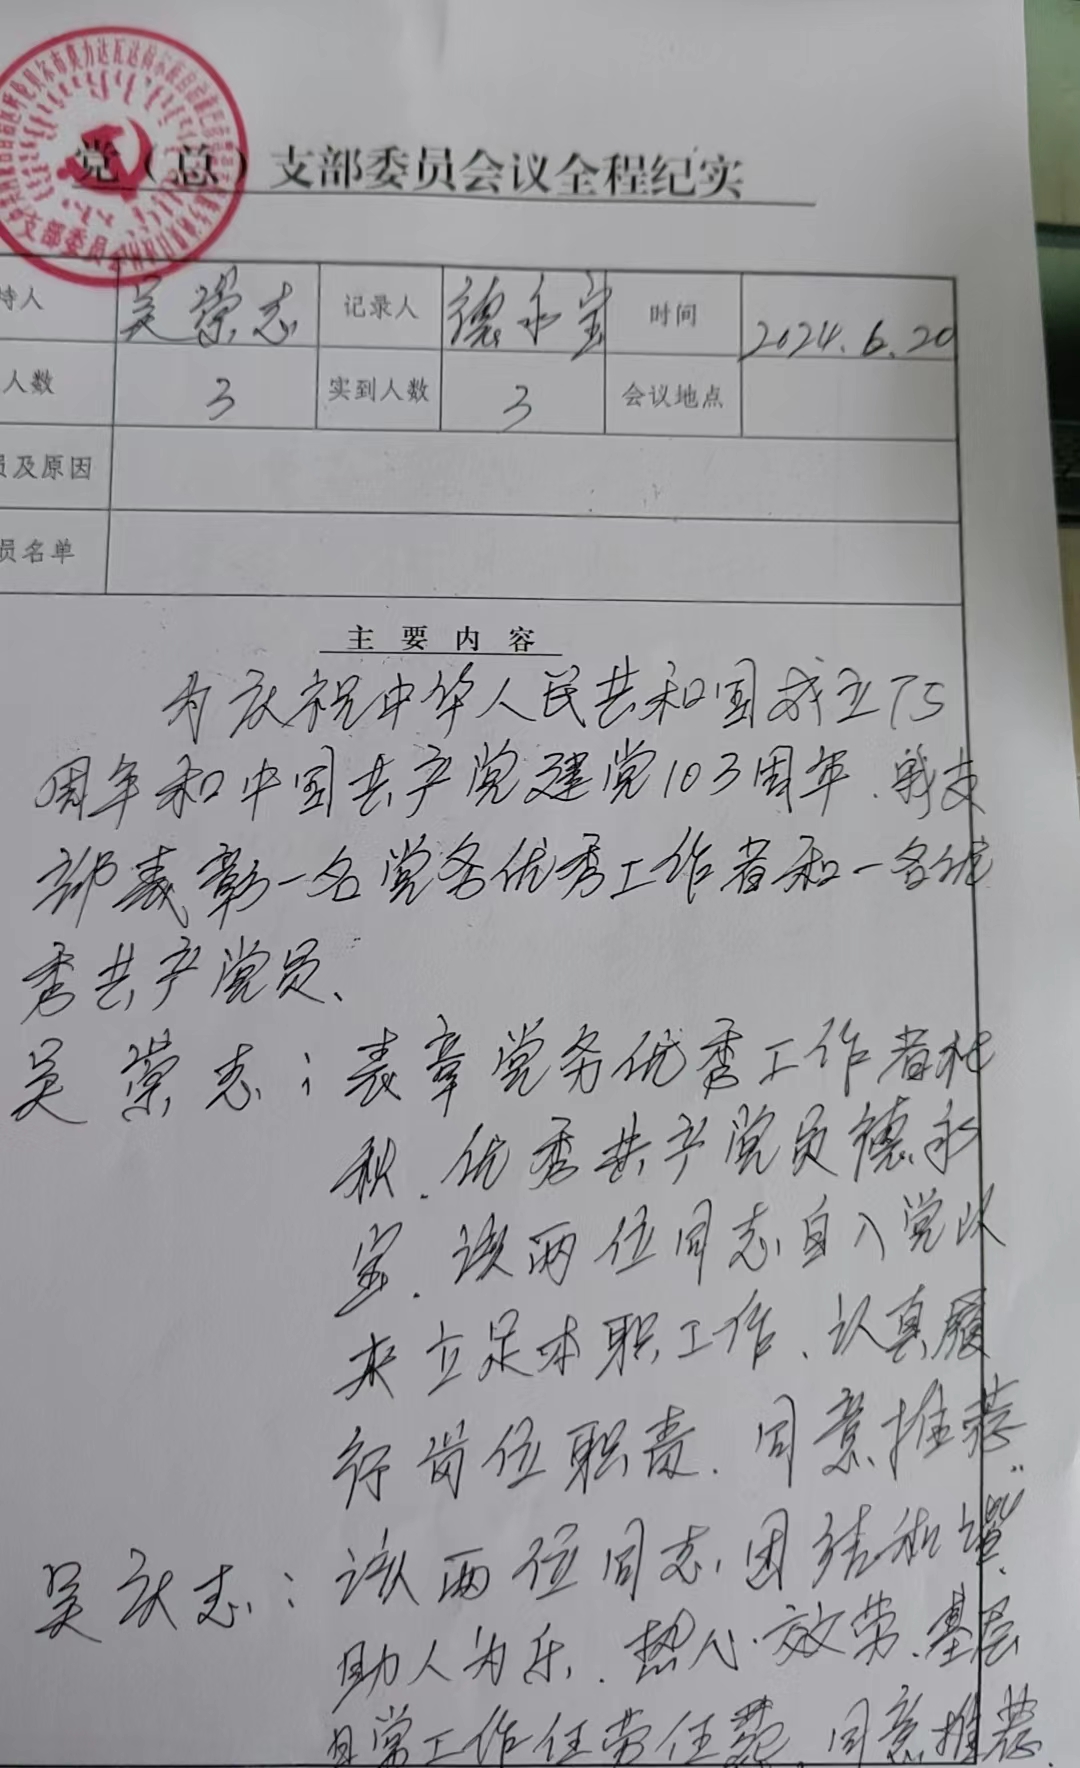 党（总）支部委员会议全程纪实
支部委员会
持人 吴荣志 记录人 德永宝 时间 2024.6.20
人数 3 实到人数 3 会议地点
员及原因
员名单
主要内容
为庆祝中华人民共和国成立75
周年和中国共产党建党103周年、我支
部表彰一名党务优秀工作者和一名优
秀共产党员、
吴荣志：表章党务优秀工作者杜
秋、优秀共产党员德永
宝、该两位同志自入党以
来立足本职工作、认真履
行岗位职责、同意推荐
吴庆志：该两位同志、团结和谐、
助人为乐、热心效劳、基层
日常工作任劳任怨、同意推荐、